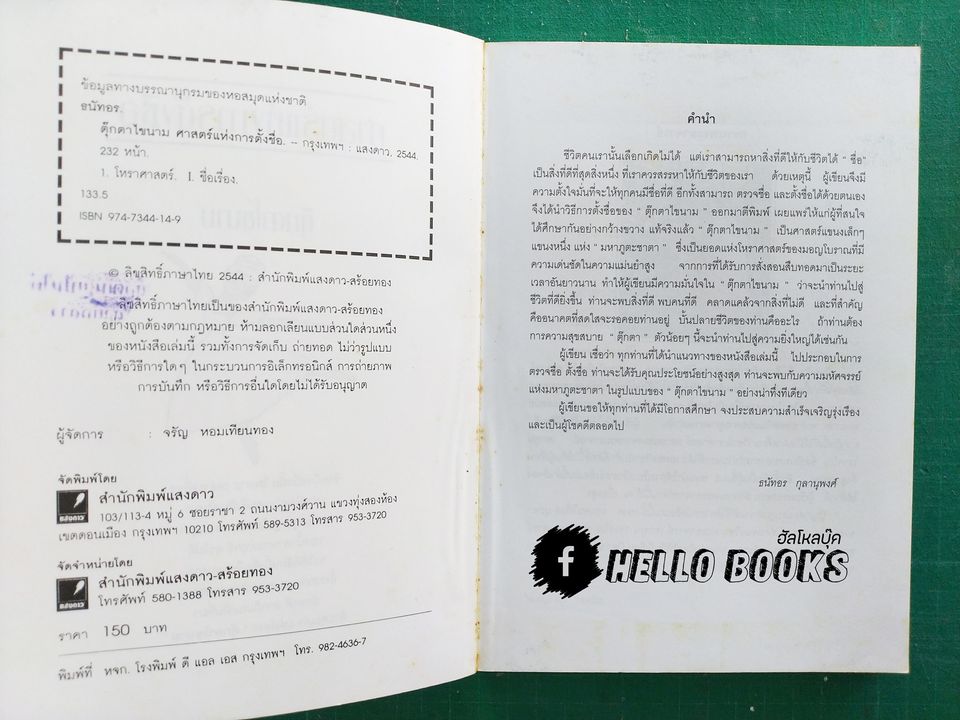 ข้อมูลทางบรรณานุกรมของหอสมุดแห่งชาติ
ธนัทอร.
ตุ๊กตาไขนาม ศาสตร์แห่งการตั้งชื่อ. -- กรุงเทพฯ : แสงดาว, 2544.
232 หน้า.
1. โหราศาสตร์. I. ชื่อเรื่อง.
133.5
ISBN 974-7344-14-9
© ลิขสิทธิ์ภาษาไทย 2544 : สำนักพิมพ์แสงดาว-สร้อยทอง
ลิขสิทธิ์ภาษาไทยเป็นของสำนักพิมพ์แสงดาว-สร้อยทอง
อย่างถูกต้องตามกฎหมาย ห้ามลอกเลียนแบบส่วนใดส่วนหนึ่ง
ของหนังสือเล่มนี้ รวมทั้งการจัดเก็บ ถ่ายทอด ไม่ว่ารูปแบบ
หรือวิธีการใดๆ ในกระบวนการอิเล็กทรอนิกส์ การถ่ายภาพ
การบันทึก หรือวิธีการอื่นใดโดยไม่ได้รับอนุญาต
ผู้จัดการ : จรัญ หอมเทียนทอง
จัดพิมพ์โดย
แสงดาว
สำนักพิมพ์แสงดาว
103/113-4 หมู่ 6 ซอยราชา 2 ถนนงามวงศ์วาน แขวงทุ่งสองห้อง
เขตดอนเมือง กรุงเทพฯ 10210 โทรศัพท์ 589-5313 โทรสาร 953-3720
จัดจำหน่ายโดย
แสงดาว
สำนักพิมพ์แสงดาว-สร้อยทอง
โทรศัพท์ 580-1388 โทรสาร 953-3720
ราคา 150 บาท
พิมพ์ที่ หจก. โรงพิมพ์ ดี แอล เอส กรุงเทพฯ โทร. 982-4636-7
คำนำ
ชีวิตคนเรานั้นเลือกเกิดไม่ได้ แต่เราสามารถหาสิ่งที่ดีให้กับชีวิตได้ " ชื่อ"
เป็นสิ่งที่ดีที่สุดสิ่งหนึ่ง ที่เราควรสรรหาให้กับชีวิตของเรา ด้วยเหตุนี้ ผู้เขียนจึงมี
ความตั้งใจมั่นที่จะให้ทุกคนมีชื่อที่ดี อีกทั้งสามารถ ตรวจชื่อ และตั้งชื่อได้ด้วยตนเอง
จึงได้นำวิธีการตั้งชื่อของ " ตุ๊กตาไขนาม " ออกมาตีพิมพ์ เผยแพร่ให้แก่ผู้ที่สนใจ
ได้ศึกษากันอย่างกว้างขวาง แท้จริงแล้ว " ตุ๊กตาไขนาม " เป็นศาสตร์แขนงเล็กๆ
แขนงหนึ่ง แห่ง " มหาภูตะชาตา " ซึ่งเป็นยอดแห่งโหราศาสตร์ของมอญโบราณที่มี
ความเด่นชัดในความแม่นยำสูง จากการที่ได้รับการสั่งสอนสืบทอดมาเป็นระยะ
เวลาอันยาวนาน ทำให้ผู้เขียนมีความมั่นใจใน " ตุ๊กตาไขนาม " ว่าจะนำท่านไปสู่
ชีวิตที่ดียิ่งขึ้น ท่านจะพบสิ่งที่ดี พบคนที่ดี คลาดแคล้วจากสิ่งที่ไม่ดี และที่สำคัญ
คืออนาคตที่สดใสจะรอคอยท่านอยู่ บั้นปลายชีวิตของท่านคืออะไร ถ้าท่านต้อง
การความสุขสบาย " ตุ๊กตา " ตัวน้อยๆ นี้จะนำท่านไปสู่ความยิ่งใหญ่ได้เช่นกัน
ผู้เขียน เชื่อว่า ทุกท่านที่ได้นำแนวทางของหนังสือเล่มนี้ ไปประกอบในการ
ตรวจชื่อ ตั้งชื่อ ท่านจะได้รับคุณประโยชน์อย่างสูงสุด ท่านจะพบกับความมหัศจรรย์
แห่งมหาภูตะชาตา ในรูปแบบของ " ตุ๊กตาไขนาม " อย่างน่าทึ่งทีเดียว
ผู้เขียนขอให้ทุกท่านที่ได้มีโอกาสศึกษา จงประสบความสำเร็จเจริญรุ่งเรือง
และเป็นผู้โชคดีตลอดไป
ธนัทอร กุลานุพงศ์
ฮัลโหลบุ๊ค
f HELLO BOOKS